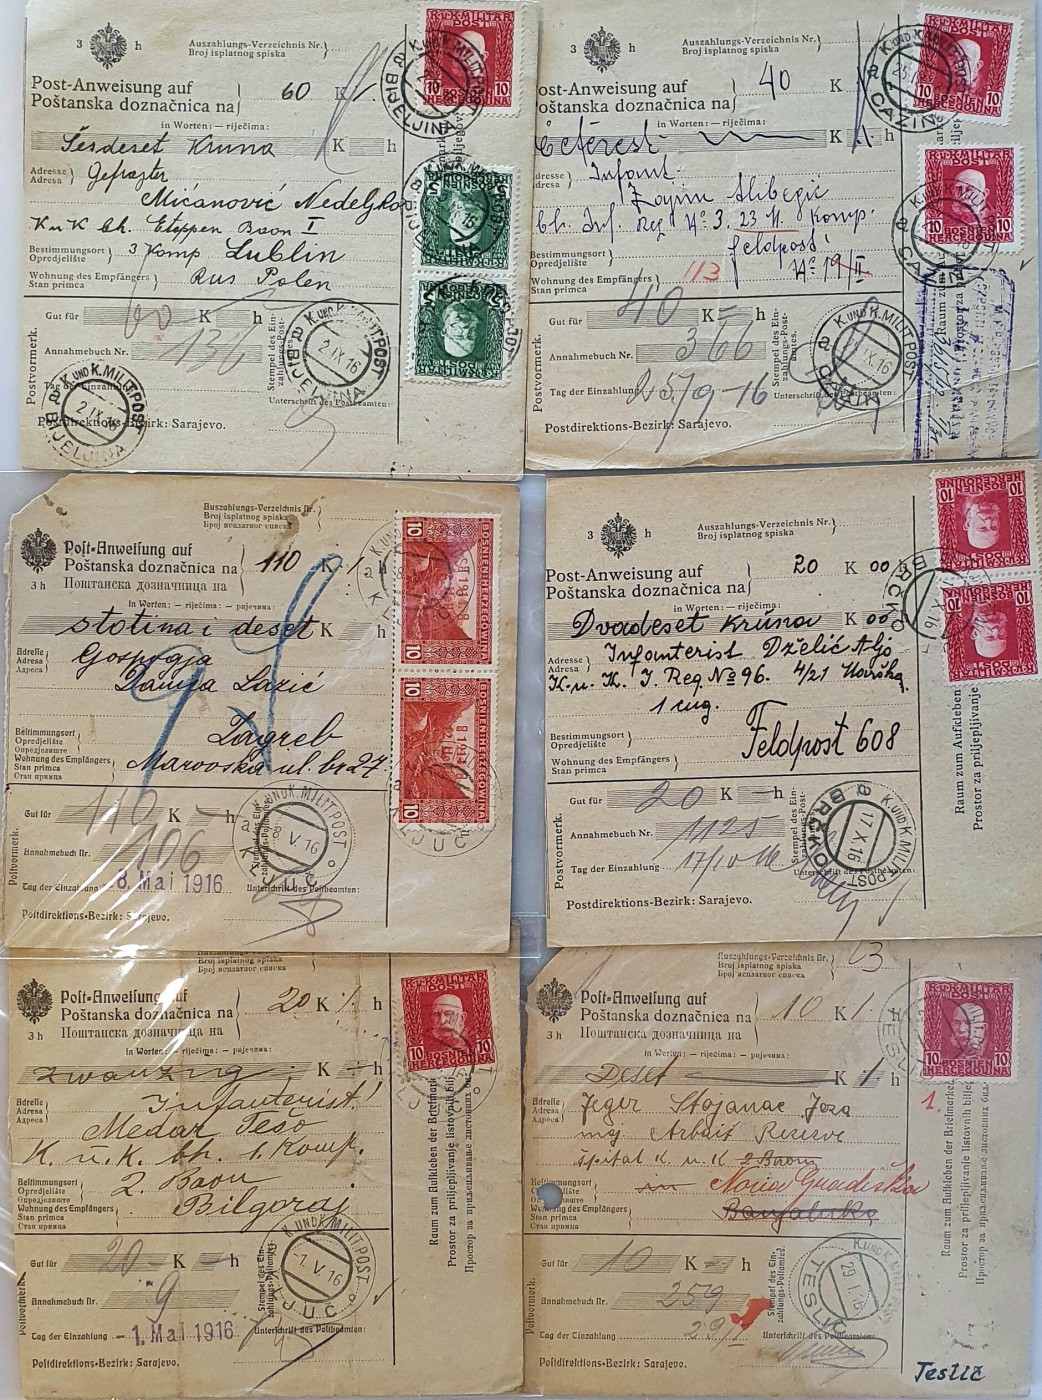 3 h
Auszahlungs-Verzeichnis Nr.
Broj isplatnog spiska
Post-Anweisung auf
Poštanska doznačnica na
60 K
in Worten: — riječima:
Šesdeset Kruna K h
Adresse
Adresa
Gefrajter
Mićanović Nedeljko
K u K bh. Etappen Baon I
Bestimmungsort
Opredjelište
3 Komp Lublin
Wohnung des Empfängers
Stan primca
Rus Polen
Postvormerk.
Gut für 60 K h
Annahmebuch Nr. 136
Tag der Einzahlung
Stempel des Ein-
zahlungs-Post-
amtes.
Unterschrift des Postbeamten:
Postdirektions-Bezirk: Sarajevo.
K. UND K. MILIT. POST
BIJELJINA
2.IX.16
K.u.K. MILITÄR
POST
10 10
BOSNIEN
HERCEGOVINA
5
3 h
Auszahlungs-Verzeichnis Nr.
Broj isplatnog spiska
Post-Anweisung auf
Poštanska doznačnica na
40 K
in Worten: — riječima:
K h
Adresse
Adresa
Infant.
Alibegić
bh. Inf. Reg No 3. 23 M. Komp.
Bestimmungsort
Opredjelište
feldpost
Wohnung des Empfängers
Stan primca
113
Postvormerk.
Gut für 40 K h
Annahmebuch Nr. 366
Tag der Einzahlung 25/9-16
Unterschrift des Postbeamten:
Postdirektions-Bezirk: Sarajevo.
K. UND K. MILIT. POST
CAZIN
K.u.K. MILITÄR
POST
10 10
BOSNIEN
HERCEGOVINA
Auszahlungs-Verzeichnis Nr.
Broj isplatnog spiska
Број исплатног списка
Post-Anweisung auf
Poštanska doznačnica na
Поштанска дозначница на
3 h
110 K h
in Worten: — riječima: — ријечима:
stotina i deset K h
Adresse
Adresa
Адреса
Gospogja
Danica Lazić
Bestimmungsort
Opredjelište
Опредјелиште
Zagreb
Wohnung des Empfängers
Stan primca
Стан примца
Marovska ul. br 27
Postvormerk.
Gut für 110 K h
Annahmebuch Nr. 106
Tag der Einzahlung -8. Mai 1916
Unterschrift des Postbeamten:
Postdirektions-Bezirk: Sarajevo.
K. UND K. MILIT. POST
KLJUČ
8.V.16
BOSNIEN HERZEGOWINA
10 10
3 h
Auszahlungs-Verzeichnis Nr.
Broj isplatnog spiska
Post-Anweisung auf
Poštanska doznačnica na
20 K 00 h
in Worten: — riječima:
Dvadeset kruna K 00
Adresse
Adresa
Infanterist Dželić Aljo
K. u. K. I. Reg. No 96. 4/21
1 cug.
Bestimmungsort
Opredjelište
Feldpost 608
Wohnung des Empfängers
Stan primca
Postvormerk.
Gut für 20 K h
Annahmebuch Nr. 1125
Tag der Einzahlung 17/10 16
Unterschrift des Postbeamten:
Postdirektions-Bezirk: Sarajevo.
K. UND K. MILIT. POST
BRČKO
17.X.16
Raum zum Aufkleben
Prostor za priljepljivanje
10 10
Auszahlungs-Verzeichnis Nr.
Broj isplatnog spiska
Број исплатног списка
Post-Anweisung auf
Poštanska doznačnica na
Поштанска дозначница на
3 h
20 K h
in Worten: — riječima: — ријечима:
zwanzig K h
Adresse
Adresa
Адреса
Infanterist!
Medar Tešo
K. u. K. bh. 1. Komp.
Bestimmungsort
Opredjelište
Опредјелиште
2. Baon
Wohnung des Empfängers
Stan primca
Стан примца
Bilgoraj
Postvormerk.
Gut für 20 K h
Annahmebuch Nr. 9
Tag der Einzahlung -1. Mai 1916
Unterschrift des Postbeamten:
Postdirektions-Bezirk: Sarajevo.
K. UND K. MILIT. POST
KLJUČ
-1.V.16
K.u.K. MILITÄR
POST
10 10
BOSNIEN
HERCEGOVINA
Raum zum Aufkleben der Briefmarke
Prostor za priljepljivanje listovnih
Простор за приљепљивање листовних
Auszahlungs-Verzeichnis Nr.
Broj isplatnog spiska
Број исплатног списка
Post-Anweisung auf
Poštanska doznačnica na
Поштанска дозначница на
3 h
10 K h
in Worten: — riječima: — ријечима:
Deset K h
Adresse
Adresa
Адреса
Jeger Stojanac Joza
Arbait Reserve
Špital K u K 2 Baon
Bestimmungsort
Opredjelište
Опредјелиште
in Nova Gradiška
Wohnung des Empfängers
Stan primca
Стан примца
Banjaluka
Postvormerk.
Gut für 10 K h
Annahmebuch Nr. 259
Tag der Einzahlung 29/1
Unterschrift des Postbeamten:
Postdirektions-Bezirk: Sarajevo.
TESLIĆ
K.u.K. MILITÄR
POST
10 10
BOSNIEN
HERCEGOVINA
1.
Raum zum Aufkleben der Briefmarke
Prostor za priljepljivanje listovnih
Простор за приљепљивање листовних
Teslič